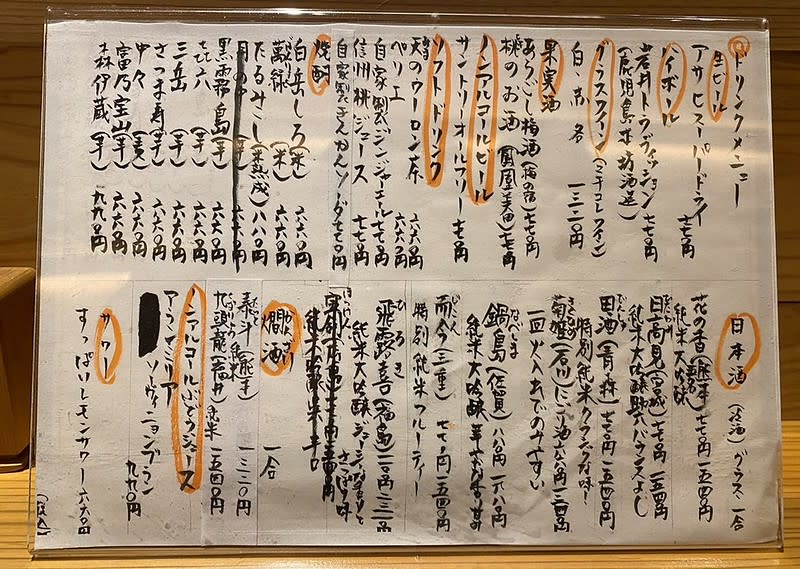 ドリンクメニュー
生ビール
アサヒスーパードライ 七七〇円
ハイボール
岩井トラディション 七七〇円
(鹿児島 本坊酒造)
グラスワイン(ミチコレワイン)
白・赤 各 一三二〇円
果実酒
あらごし梅酒(梅の宿)七七〇円
桃のお酒(鳳凰美田)七七〇円
ノンアルコールビール
サントリーオールフリー 七七〇円
ソフトドリンク
天のウーロン茶 六六〇円
ペリエ 六六〇円
自家製ジンジャーエール 七七〇円
信州桃ジュース 七七〇円
自家製きんかんソーダ 七七〇円
焼酎
白岳しろ(米)六六〇円
萬緑(米)六六〇円
たるみこし(米熟成)八八〇円
月の中(芋)六六〇円
黒霧島(芋)六六〇円
七六(芋)六六〇円
三岳(芋)六六〇円
さつま寿(芋)六六〇円
中々(麦)六六〇円
富乃宝山(芋)六六〇円
森伊蔵(芋)九九〇円
日本酒(冷酒)グラス 一合
花の香(熊本)七七〇円 一五四〇円
純米大吟醸
日高見(宮城)七七〇円 一五四〇円
純米大吟醸 バランスよし
田酒(青森)七七〇円 一五四〇円
特別純米 クラシックな味
菊姫(石川)にごり酒
一回火入れでのみやすい
鍋島(佐賀)八八〇円
純米大吟醸
而今(三重)七七〇円 一五四〇円
特別純米 フルーティー
飛露喜(福島)
純米大吟醸 ジューシー
純米大吟醸 辛口
燗酒 一合
泰斗(熊本)一三二〇円
純米
九頭龍(福井)純米 一五四〇円
ノンアルコールぶどうジュース
アランミリア
ソーヴィニョンブラン
九九〇円
サワー
すっぱいレモンサワー 六六〇円
(税込)